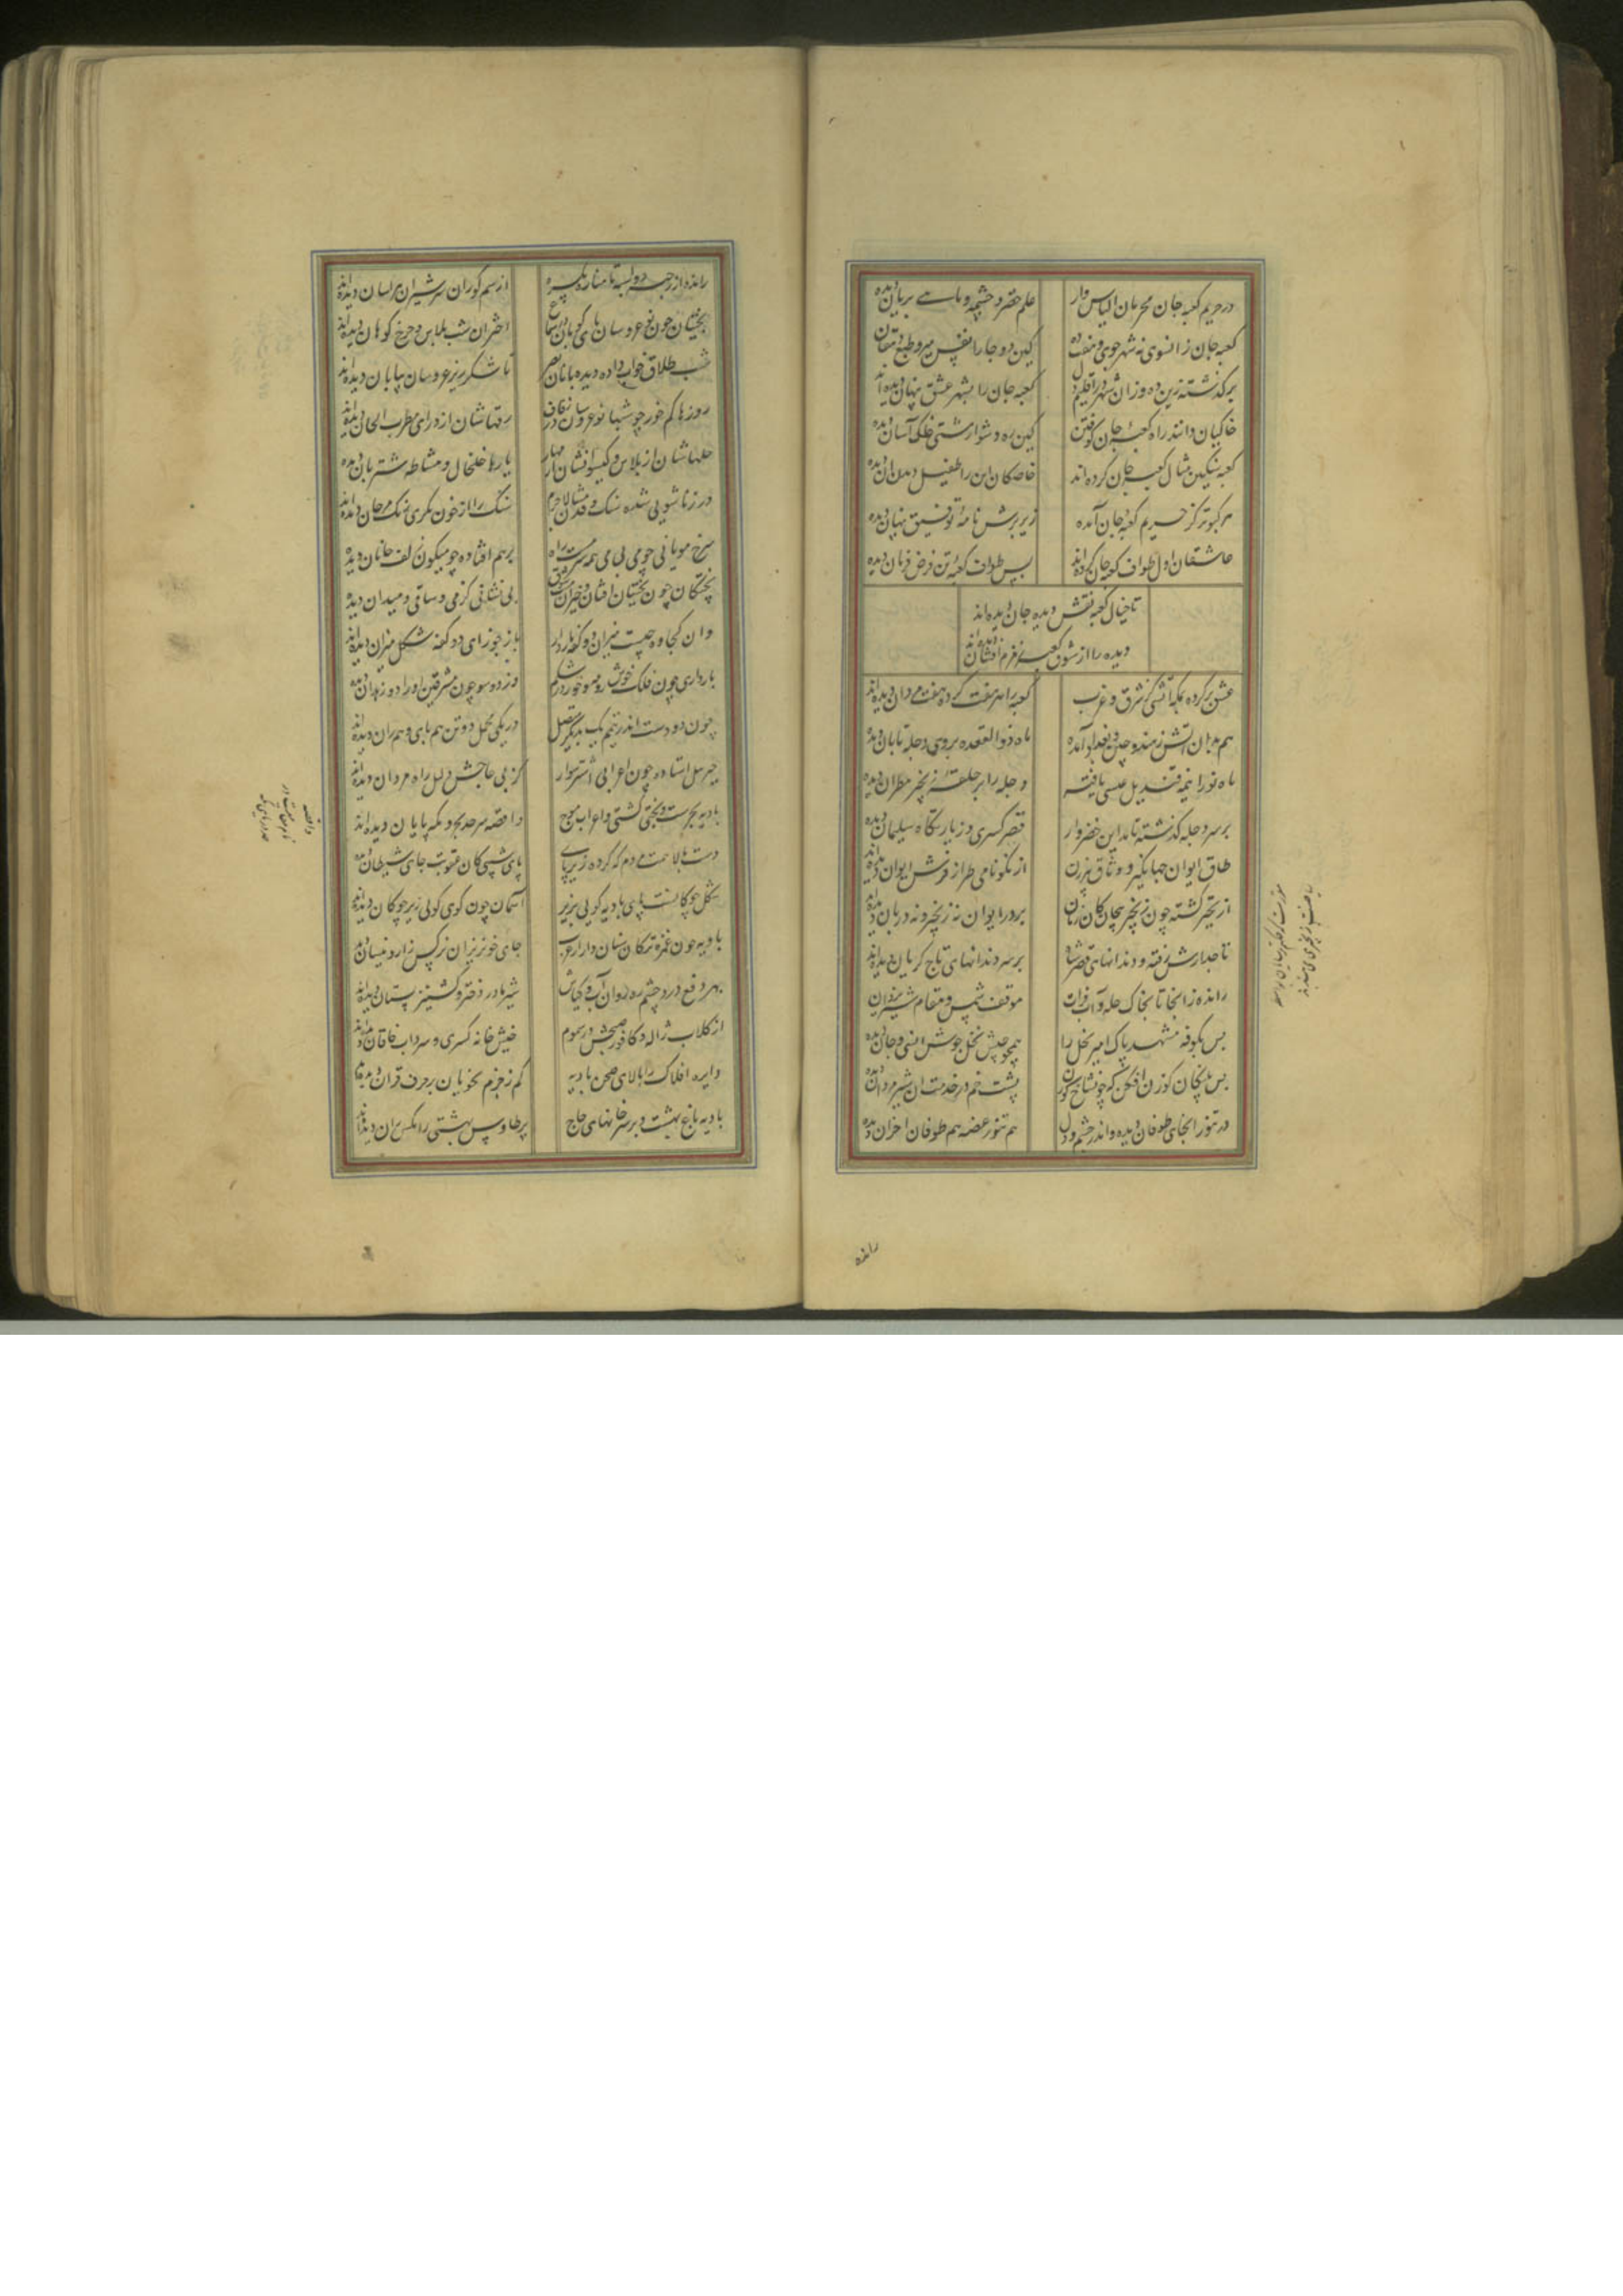 در حریم کعبه جان محرمان الیاس وار علم خضر و چشمه و ماهی بریان دیده
کعبه جان زانسوی نه شهر جوی و هفت ده کین دو جا را نفس میر و طبع دهقان دیده
بر گذشته زین ده و زان شهر در اقلیم دل کعبه جان را بشهر عشق پنهان دیده اند
خاکیان دانند راه کعبه جان کوفتن کین ره دشوار مشتی خاکی آسان دیده
کعبه سنگین مثال کعبه جان کرده اند خاصگان این را طفیل دیدن آن دیده
هر کبوتر کز حریم کعبه جان آمده زیر پرش نامه توفیق پنهان دیده
عاشقان اول طواف کعبه جان کرده اند پس طواف کعبه تن فرض فرمان دیده
تا خیال کعبه نقش دیده جان دیده اند
دیده را از شوق کعبه زمزم افشان دیده اند
عشق بر کرده بمکه آتشی کز شرق و غرب کعبه را هر هفت کرده هفت مردان دیده اند
هم بدان آتش ز هند و چین و بغداد آمده ماه ذوالقعده بروی دجله تابان دیده
ماه نو را نیمه قندیل عیسی یافته دجله را پر حلقه زنجیر مطران دیده
بر سر دجله گذشته تا مداین خضروار قصر کسری و زیارتگاه سلیمان دیده
طاق ایوان جهانگیر و وثاق پیرزن از نکونامی طراز فرش ایوان دیده اند
از تحیر گشته چون زنجیر پیچان کان زمان بر در ایوان نه زنجیر و نه دربان دیده اند
تاجدارش رفته و دندانهای قصر شاه بر سر دندانهای تاج گریان دیده اند
رانده زانجا تا بخاک حله و آب فرات موقف شمس و مقام شیر یزدان
پس بکوفه مشهد پاک امیر نحل را همچو جیش نحل جوش انسی و جان دیده
بس پلنگان گوزن افکن که چون شاخ گوزن پشت خم در خدمت آن شیر مردان دیده
در تنور آنجای طوفان دیده و اندر چشم و دل هم تنور غصه هم طوفان احزان دیده
رانده
رانده از رحبه دو اسبه تا مناره یکسره از سم گوران سر شیران هراسان دیده اند
بختیان چون نوعروسان پای کوبان در سماع اختران شب پلاس و چرخ کوهان دیده اند
شب طلاق خواب داده دیده بانان بصر تا شکرریز عروسان بیابان دیده اند
روزها کم خور چو شبها نوعروسان در زفاف زقهاشان از درای مطرب الحان دیده اند
حلهاشان از پلاس و گیسوانشان از مهار پارها خلخال و مشاطه شتربان دیده
در زناشویی شده سنگ و قدمشان لاجرم سنگ را از خون بکری رنگ مرجان دیده اند
سرخ مویانی چو می بی می همه سرمست راه برهم افتاده چو میگون زلف جانان دیده
پختگان چون بختیان افتان و خیزان مست شوق بی نشاطی گرمی و ساقی و میدان دیده
وان کجاوه چیست میزان دو کفه باردار باز جوزای دو کفه شکل میزان دیده اند
بارداری چون فلک خوش رو مه و خور در شکم وز دو سو چون مشرقین او را دو زهدان دیده
چون دو دست اندر تیمم یک بدیگر متصل در یکی محمل دو تن هم پای و هم ران دیده اند
جبرئیل استاده چون اعرابی اشتر سوار کز پی حاجش دلیل راه مردان دیده اند
بادیه بحرست و بختی کشتی و اعراب موج واقصه سرحد بحر و مکه پایان دیده اند
دست بالا همت مردم که کرده زیر پای پای شیبی کان عقوبت جای شیطان دیده
شکل چوگانست پای بادیه گویی بزیر آسمان چون گوی گویی زیر چوگان دیده اند
بادیه چون غمزه ترکان سنان دار از عرب جای خونریزان نرگس زار و نیسان دیده
بهر دفع درد چشم رهروان ز آب و گیاش شیر مادر دختر و گشنیز پستان دیده اند
از گلاب ژاله و کافور صبحش در سموم خیش خانه کسری و سرداب خاقان دیده اند
دایره افلاک را بالای صحن بادیه کم ز جزم نحویان بر حرف قرآن دیده اند
بادیه باغ بهشت و بر سر خوانهای حاج پر طاووس بهشتی را مگس ران دیده اند